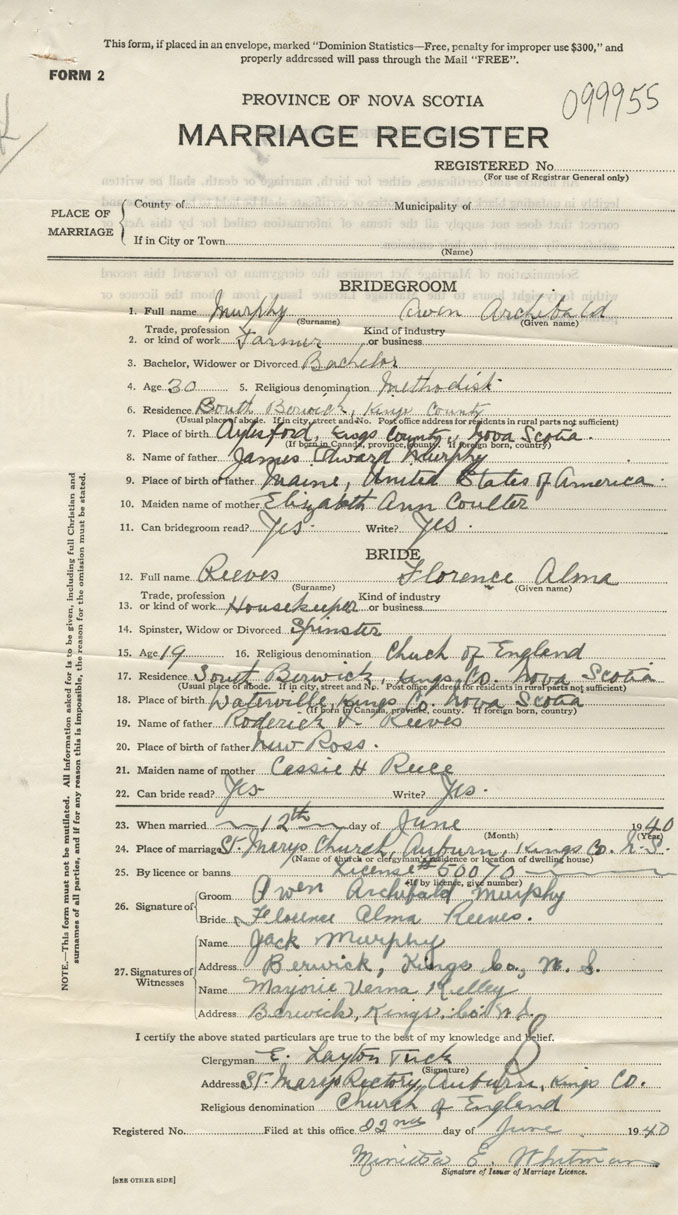 This form, if placed in an envelope, marked "Dominion Statistics—Free, penalty for improper use $300," and
properly addressed will pass through the Mail "FREE".
FORM 2
099955
PROVINCE OF NOVA SCOTIA
MARRIAGE REGISTER
REGISTERED No.
(For use of Registrar General only)
PLACE OF MARRIAGE
County of
Municipality of
If in City or Town
(Name)
BRIDEGROOM
1. Full name Murphy Owen Archibald
(Surname) (Given name)
Trade, profession Kind of industry
2. or kind of work Farmer or business
3. Bachelor, Widower or Divorced Bachelor
4. Age 30 5. Religious denomination Methodist
6. Residence South Berwick, Kings County
(Usual place of abode. If in city, street and No. Post office address for residents in rural parts not sufficient)
7. Place of birth Aylesford, Kings County, Nova Scotia.
(If born in Canada, province, county. If foreign born, country)
8. Name of father James Edward Murphy
9. Place of birth of father Maine, United States of America.
10. Maiden name of mother Elizabeth Ann Coulter
11. Can bridegroom read? Yes. Write? Yes.
BRIDE
12. Full name Reeves Florence Alma
(Surname) (Given name)
Trade, profession Kind of industry
13. or kind of work Housekeeper or business
14. Spinster, Widow or Divorced Spinster
15. Age 19 16. Religious denomination Chuch of England
17. Residence South Berwick, Kings Co. Nova Scotia
(Usual place of abode. If in city, street and No. Post office address for residents in rural parts not sufficient)
18. Place of birth Waterville, Kings Co. Nova Scotia
(If born in Canada, province, county. If foreign born, country)
19. Name of father Roderick Reeves
20. Place of birth of father New Ross.
21. Maiden name of mother Cassie H
22. Can bride read? Yes Write? Yes.
23. When married 12th day of June 1940
(Month) (Year)
24. Place of marriage St. Marys Church, Auburn, Kings Co. N.S.
(Name of church or clergyman's residence or location of dwelling house)
25. By licence or banns License # 50070
(If by licence, give number)
26. Signature of Groom Owen Archibald Murphy
Bride Florence Alma Reeves.
27. Signatures of Witnesses
Name Jack Murphy
Address Berwick, Kings Co., N. S.
Name Marjorie Verna Kelley
Address Berwick, Kings Co. N.S.
I certify the above stated particulars are true to the best of my knowledge and belief.
Clergyman E. Layton Tuck
(Signature)
Address St. Marys Rectory, Auburn, Kings Co.
Religious denomination Church of England
Registered No. Filed at this office 22nd day of June 1940
E. Whitman
Signature of Issuer of Marriage Licence.
[SEE OTHER SIDE]
NOTE.—This form must not be mutilated. All information asked for is to be given, including full Christian and
surnames of all parties, and if for any reason this is impossible, the reason for the omission must be stated.